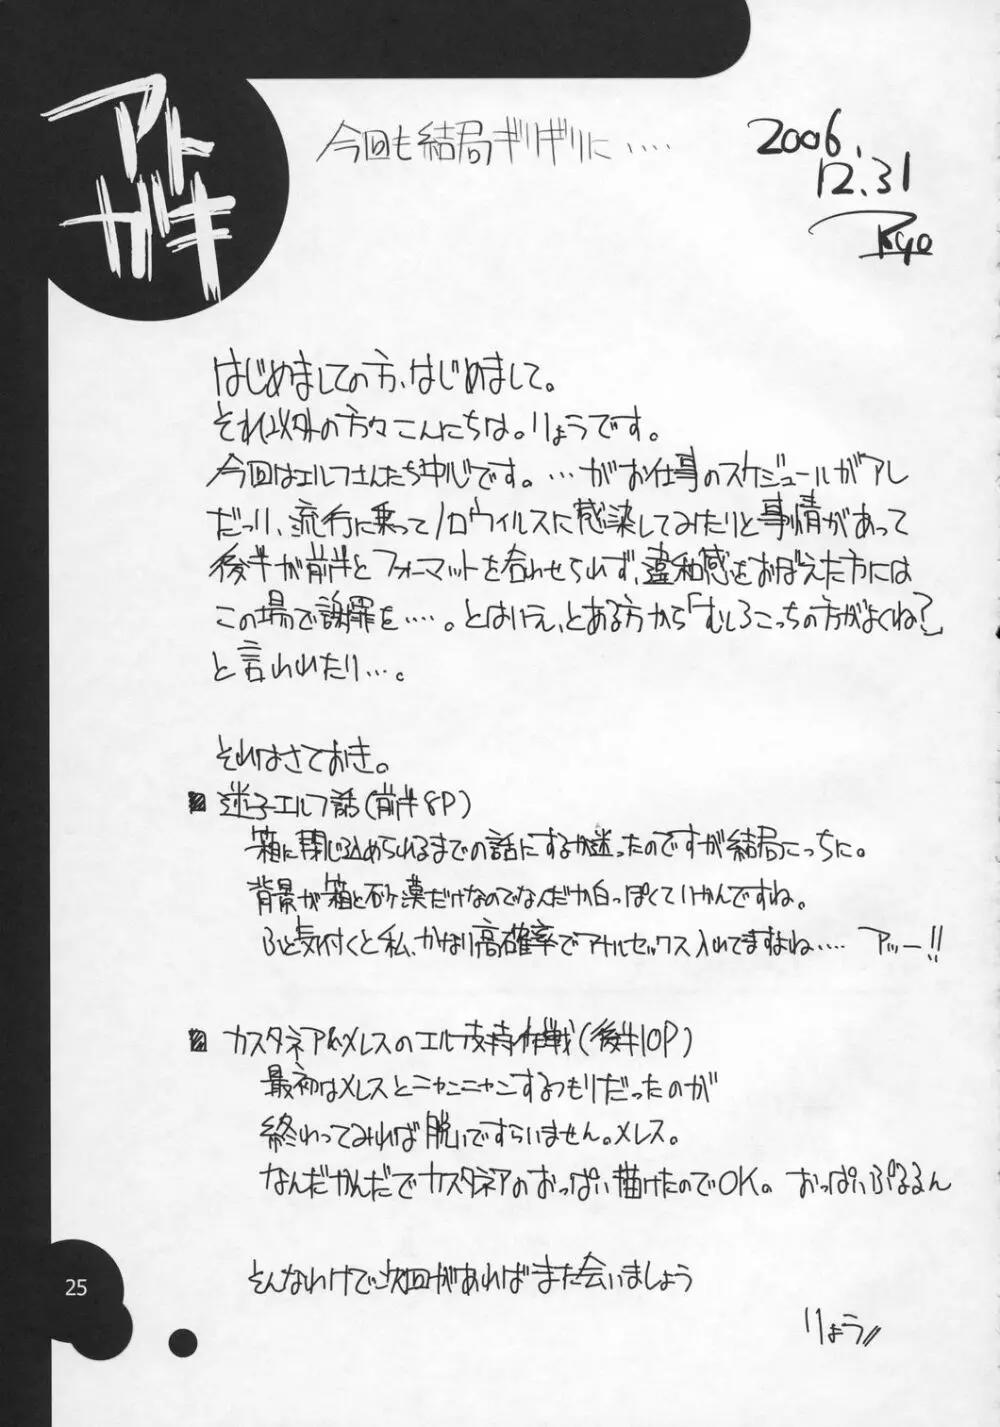 アト
ガキ
今回も結局ギリギリに・・・・
2006.
12.31
Ryo
はじめましての方、はじめまして。
それ以外の方々こんにちは。りょうです。
今回はエルフさんたち中心です。…がお仕事のスケジュールがアレ
だったり、流行に乗ってノロウィルスに感染してみたりと事情があって
後半が前半とフォーマットを合わせられず、違和感をおぼえた方には
この場で謝罪を‥‥。とはいえ、とある方から「むしろこっちの方がよくね?」
と言われたり…。
それはさておき。
■ 迷子エルフ話(前半8P)
箱に閉じ込められるまでの話にするか迷ったのですが結局こっちに。
背景が箱と砂漠だけなのでなんだか白っぽくていかんですね。
ふと気付くと私、かなり高確率でアナルセックス入れてますよね‥‥ アッー!!
■ カスタネア&メレスのエルフ支持作戦(後半10P)
最初はメレスとニャンニャンするつもりだったのが
終わってみれば脱いですらいません。メレス。
なんだかんだでカスタネアのおっぱい描けたのでOK。おっぱいぷるるん
そんなわけで次回があればまた会いましょう
りょう//
25